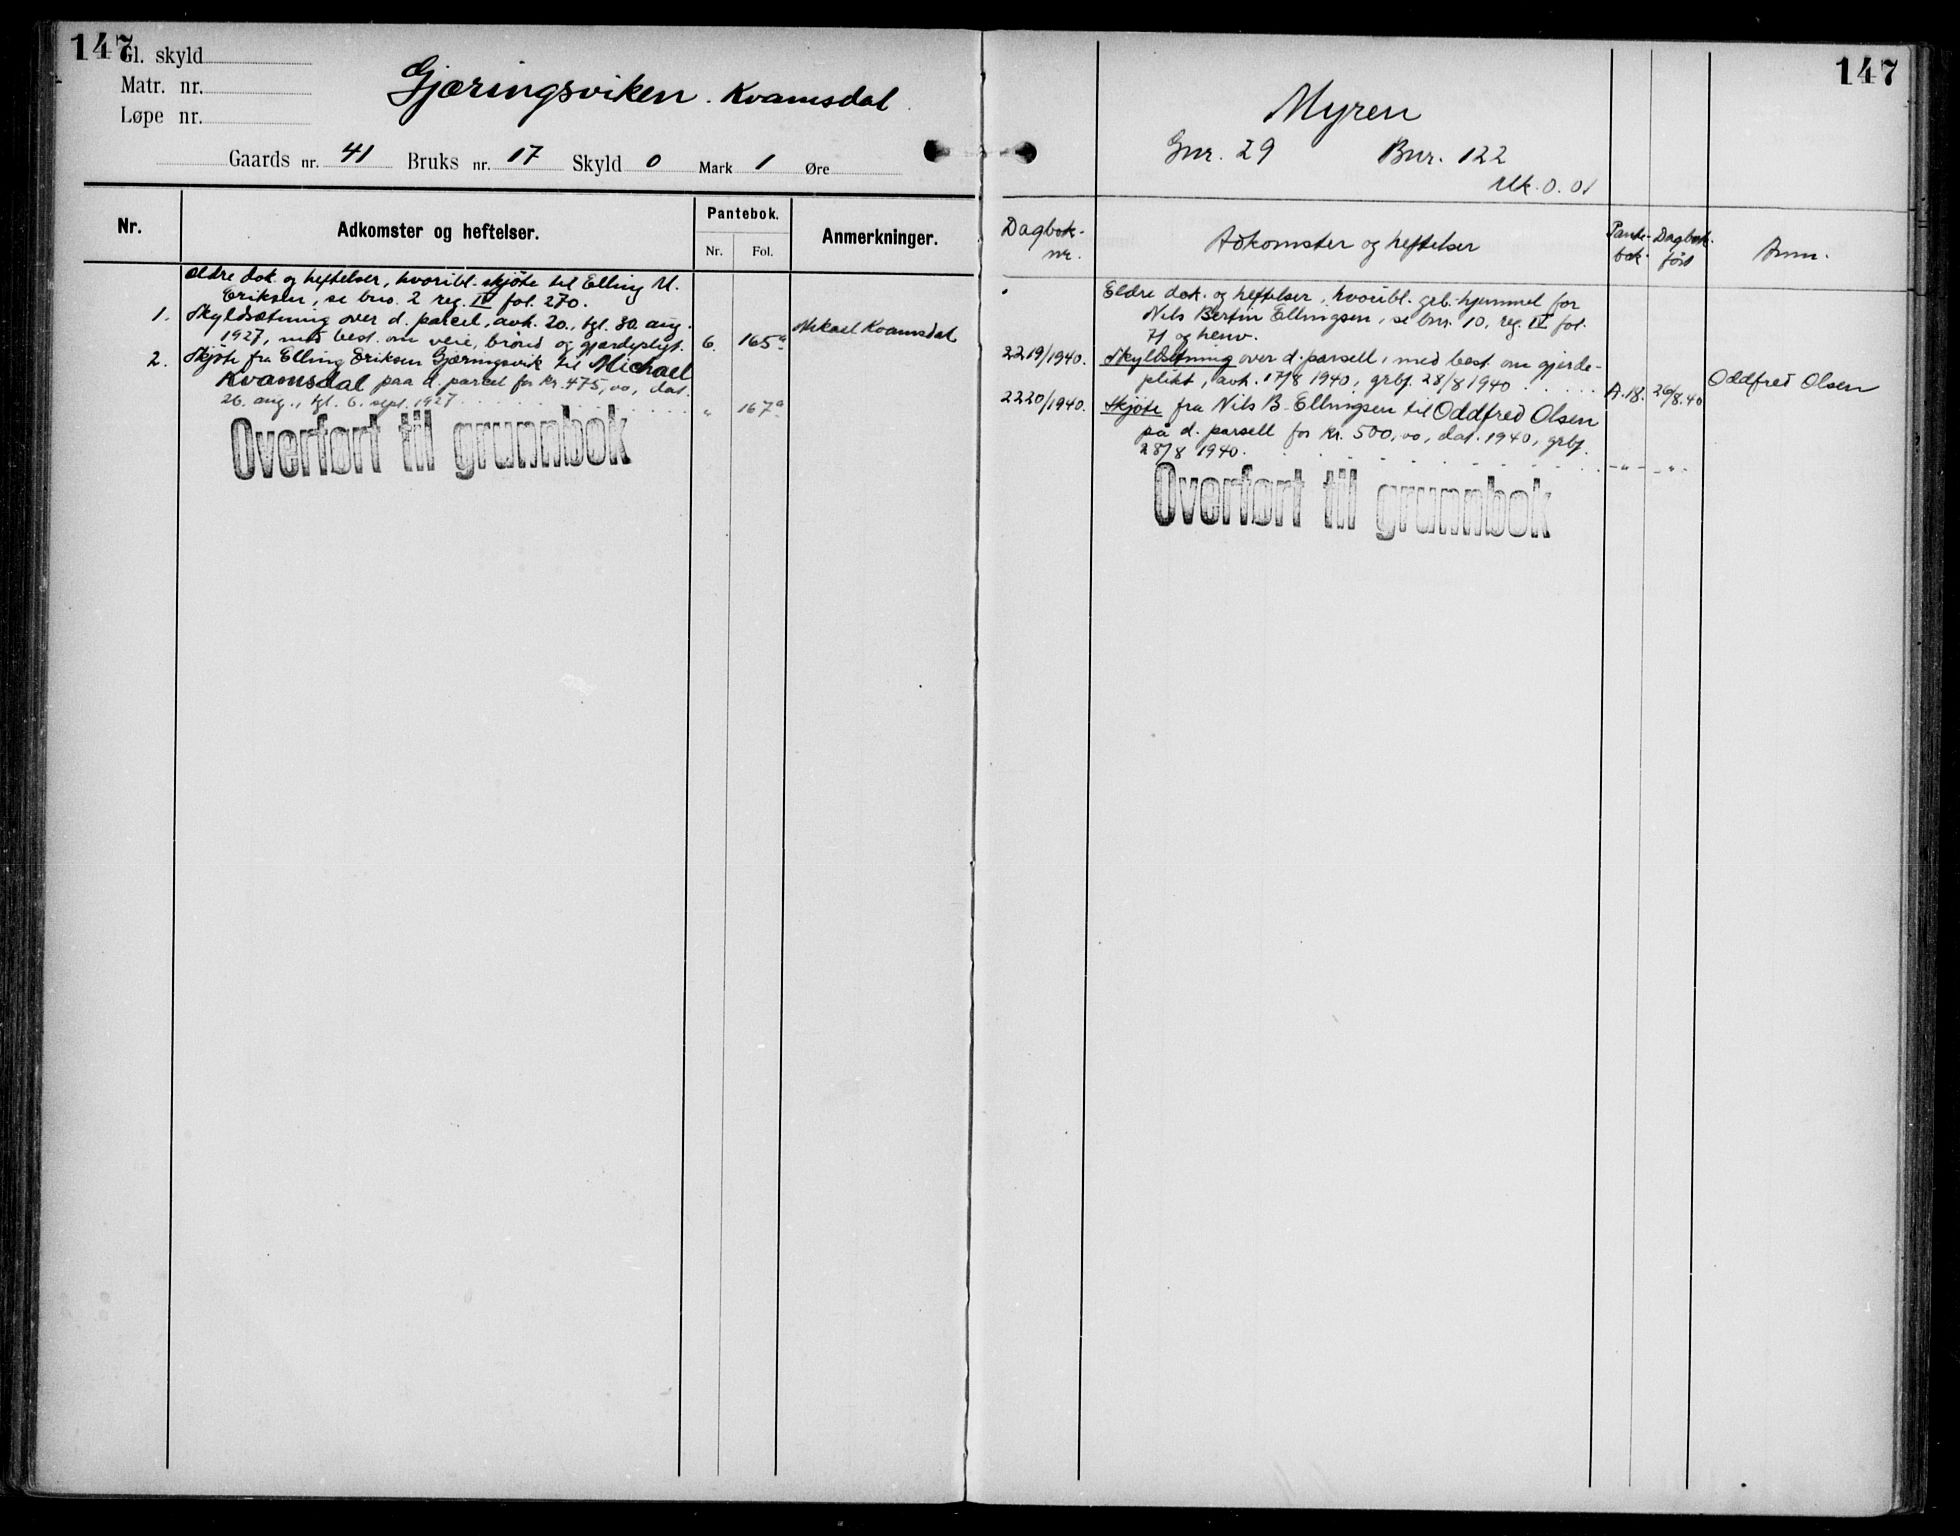 147
Gl. skyld
Matr. nr.
Løpe nr.
Gjæringsviken. Kvamsdal
Gaards nr. 41 Bruks nr. 17 Skyld 0 Mark 1 Øre
Nr.
Adkomster og heftelser.
Pantebok.
Nr. Fol.
Anmerkninger.
Ældre dok. og heftelser, hvoribl. skjøte til Elling M.
Eriksen, se bno. 2 reg. IV fol. 270.
1. Skyldsætning over d. parcel, avh. 20., tgl. 30. aug.
1927, med best. om veie, brønd og gjærdepligt. 6. 165a Mikael Kvamsdal
2. Skjøte fra Elling Eriksen Gjæringsvik til Michael
Kvamsdal paa d. parcel for kr. 475,00, dat.
26. aug., tgl. 6. sept. 1927 " 167a
Overført til grunnbok
147
Myren
Gnr. 29 Bnr. 122
Mk. 0.01
Dagbok-
nr.
Adkomster og heftelser
Pante-
bok
Dagbok-
ført
Anm.
Eldre dok. og heftelser, hvoribl. grb. hjemmel for
Nils Bertin Ellingsen, se bnr. 10, reg. IV fol.
71 og henv.
2219/1940. Skyldsetning over d. parsell, med best. om gjerde-
plikt, avh. 17/8 1940, grbf. 28/8 1940 A.18. 26/8.40 Oddfred Olsen
2220/1940. Skjøte fra Nils B. Ellingsen til Oddfred Olsen
på d. parsell for kr. 500,00, dat. 1940, grbf.
28/8 1940. -"- -"-
Overført til grunnbok